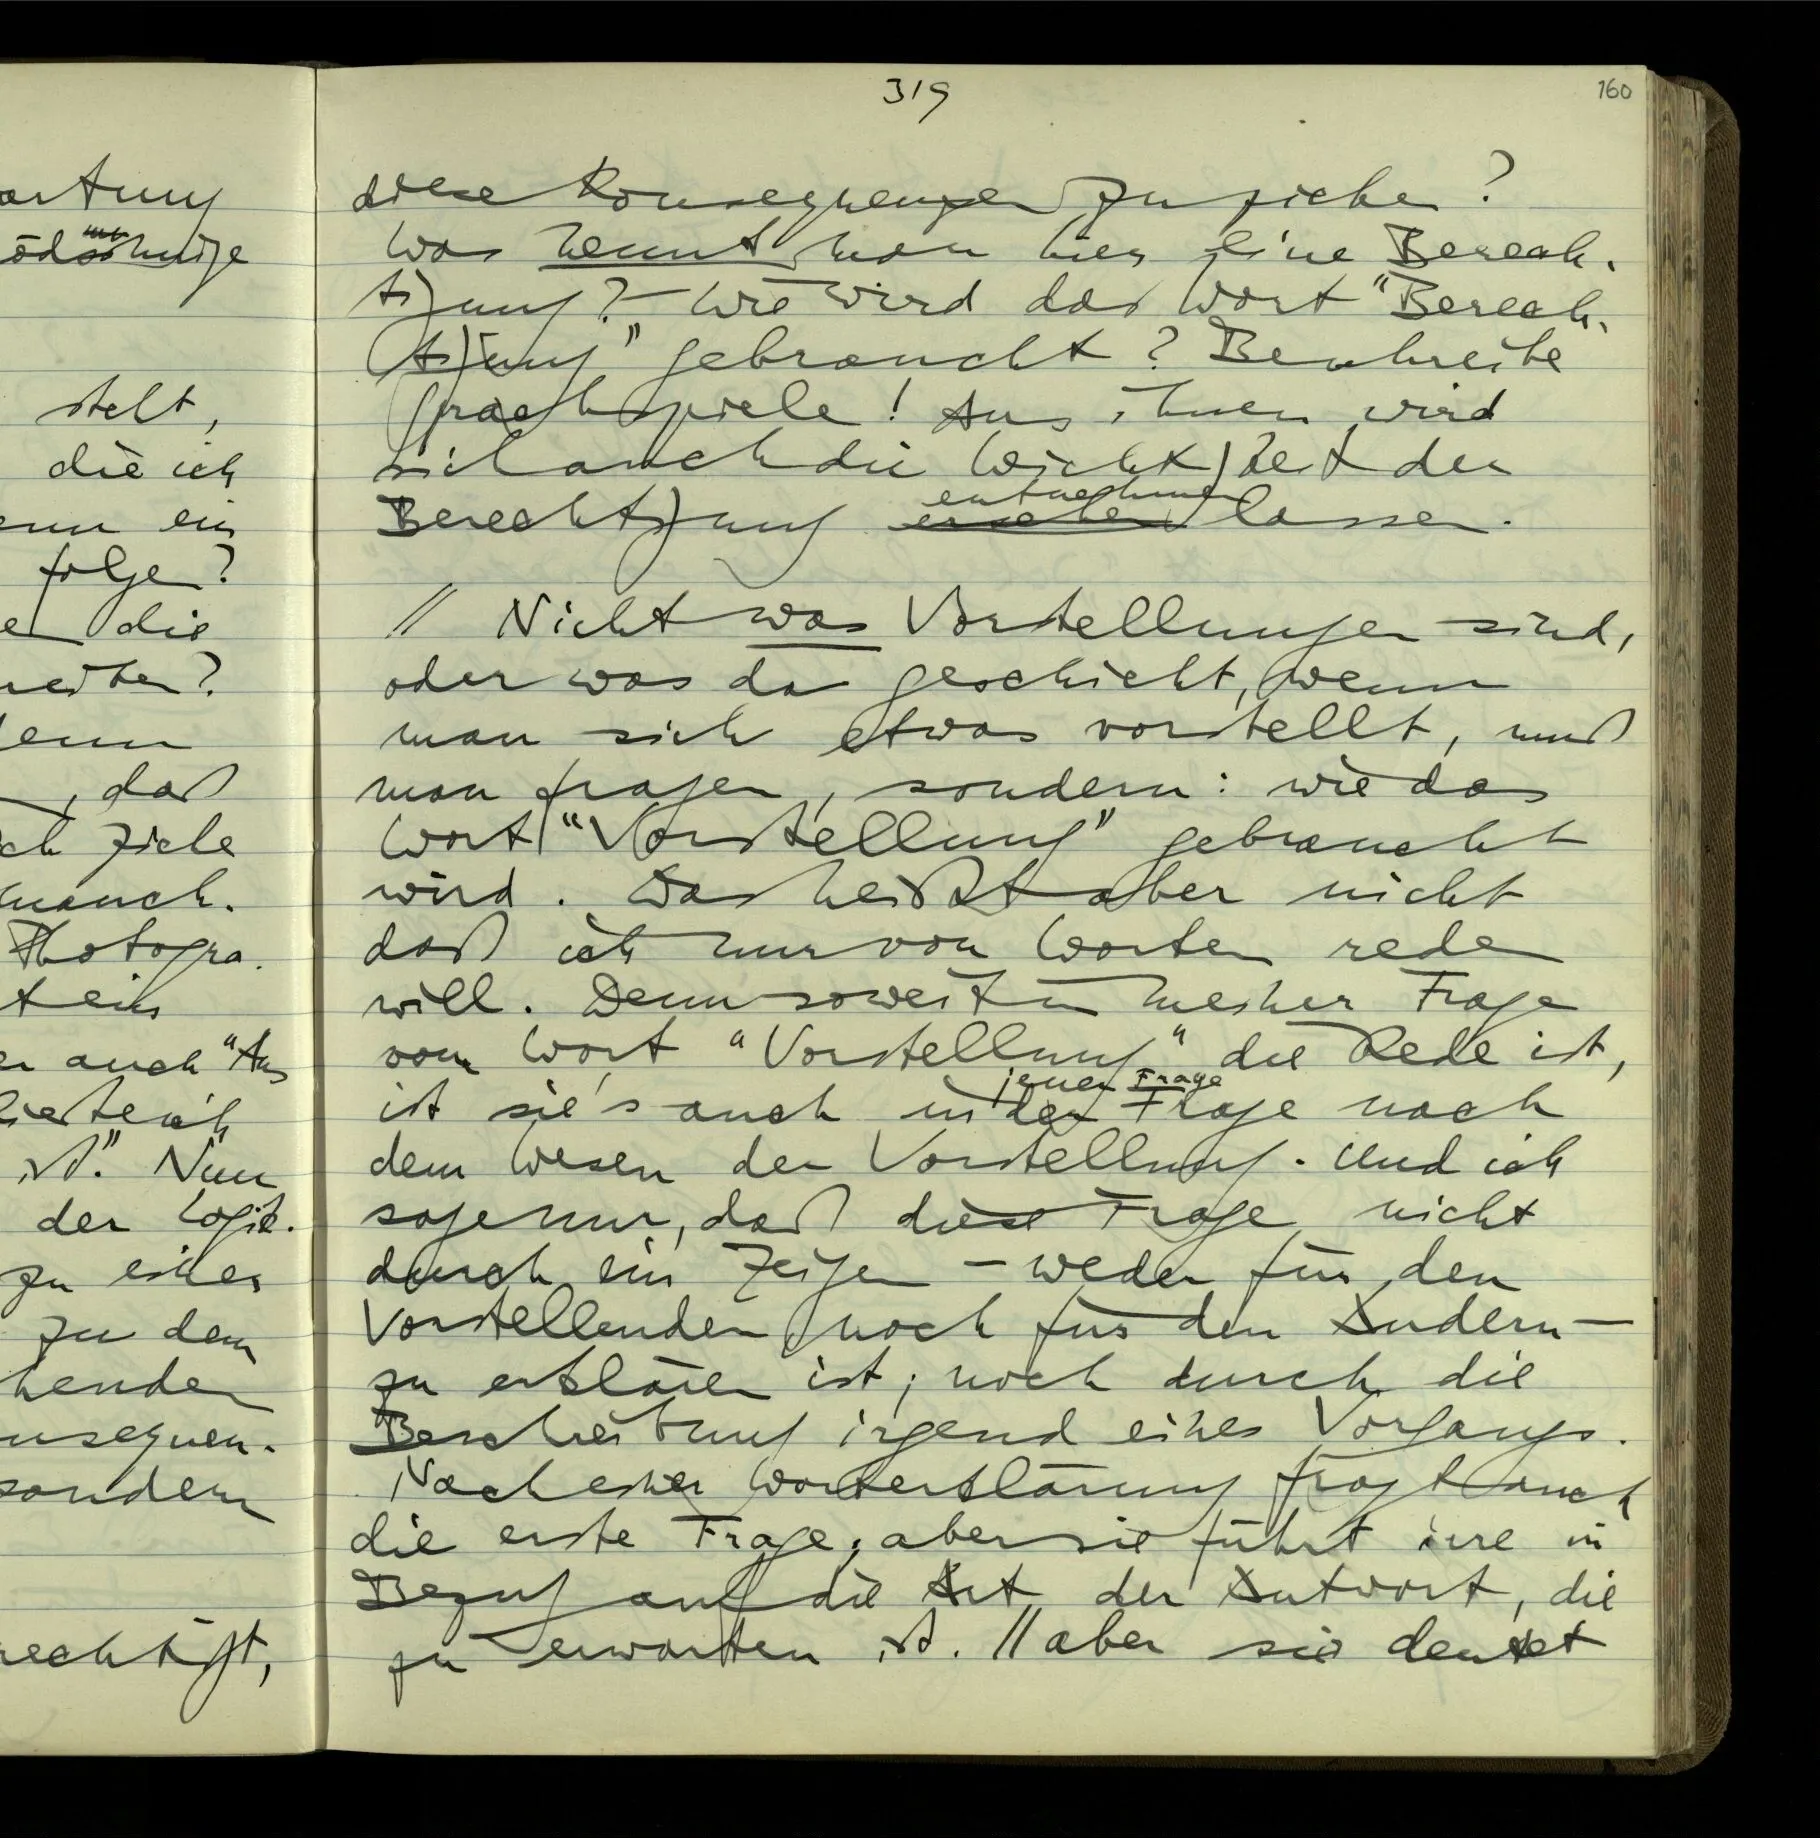 319
160
artung
stelt,
die ich
enn ein
folge?
die
denn
, daß
ich ziehe
manch-
Photogra-
auch "Aus
ist." Nun
der Logik.
zu einer
zu dem
nsequen-
sondern
rechtigt,
diese Konsequenzen zu ziehen?
Was nennt man hier eine Berech-
tigung? – Wie wird das Wort "Berech-
tigung" gebraucht? Beschreibe
Sprachspiele! Aus ihnen wird
sich auch die Wichtigkeit der
entnehmen
Berechtigung ersehen lassen.
// Nicht was Vorstellungen sind,
oder was da geschieht, wenn
man sich etwas vorstellt, muß
man fragen, sondern: wie das
Wort "Vorstellung" gebraucht
wird. Das heißt aber nicht
daß ich nur von Worten reden
will. Denn soweit in meiner Frage
vom Wort "Vorstellung" die Rede ist,
jener Frage
ist sie's auch in der Frage nach
dem Wesen der Vorstellung. Und ich
sage nur, daß diese Frage nicht
durch ein Zeigen – weder für den
Vorstellenden noch für den Andern –
zu erklären ist; noch durch die
Beschreibung irgend eines Vorgangs.
Nach einer Worterklärung fragt auch
die erste Frage; aber sie führt irre in
Bezug auf die Art der Antwort, die
zu erwarten ist. // aber sie deutet